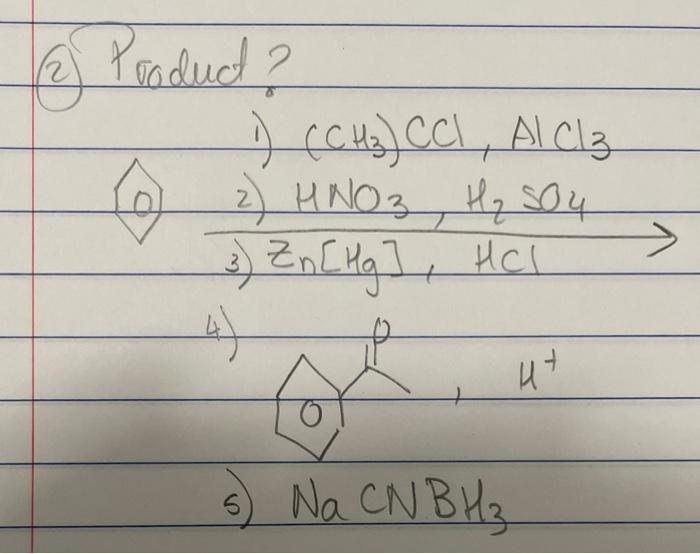 2) Product?
1) (CH3)CCl, AlCl3
O 2) HNO3, H2SO4
3) Zn[Hg], HCl
4)
O
O , H+
5) NaCNBH3